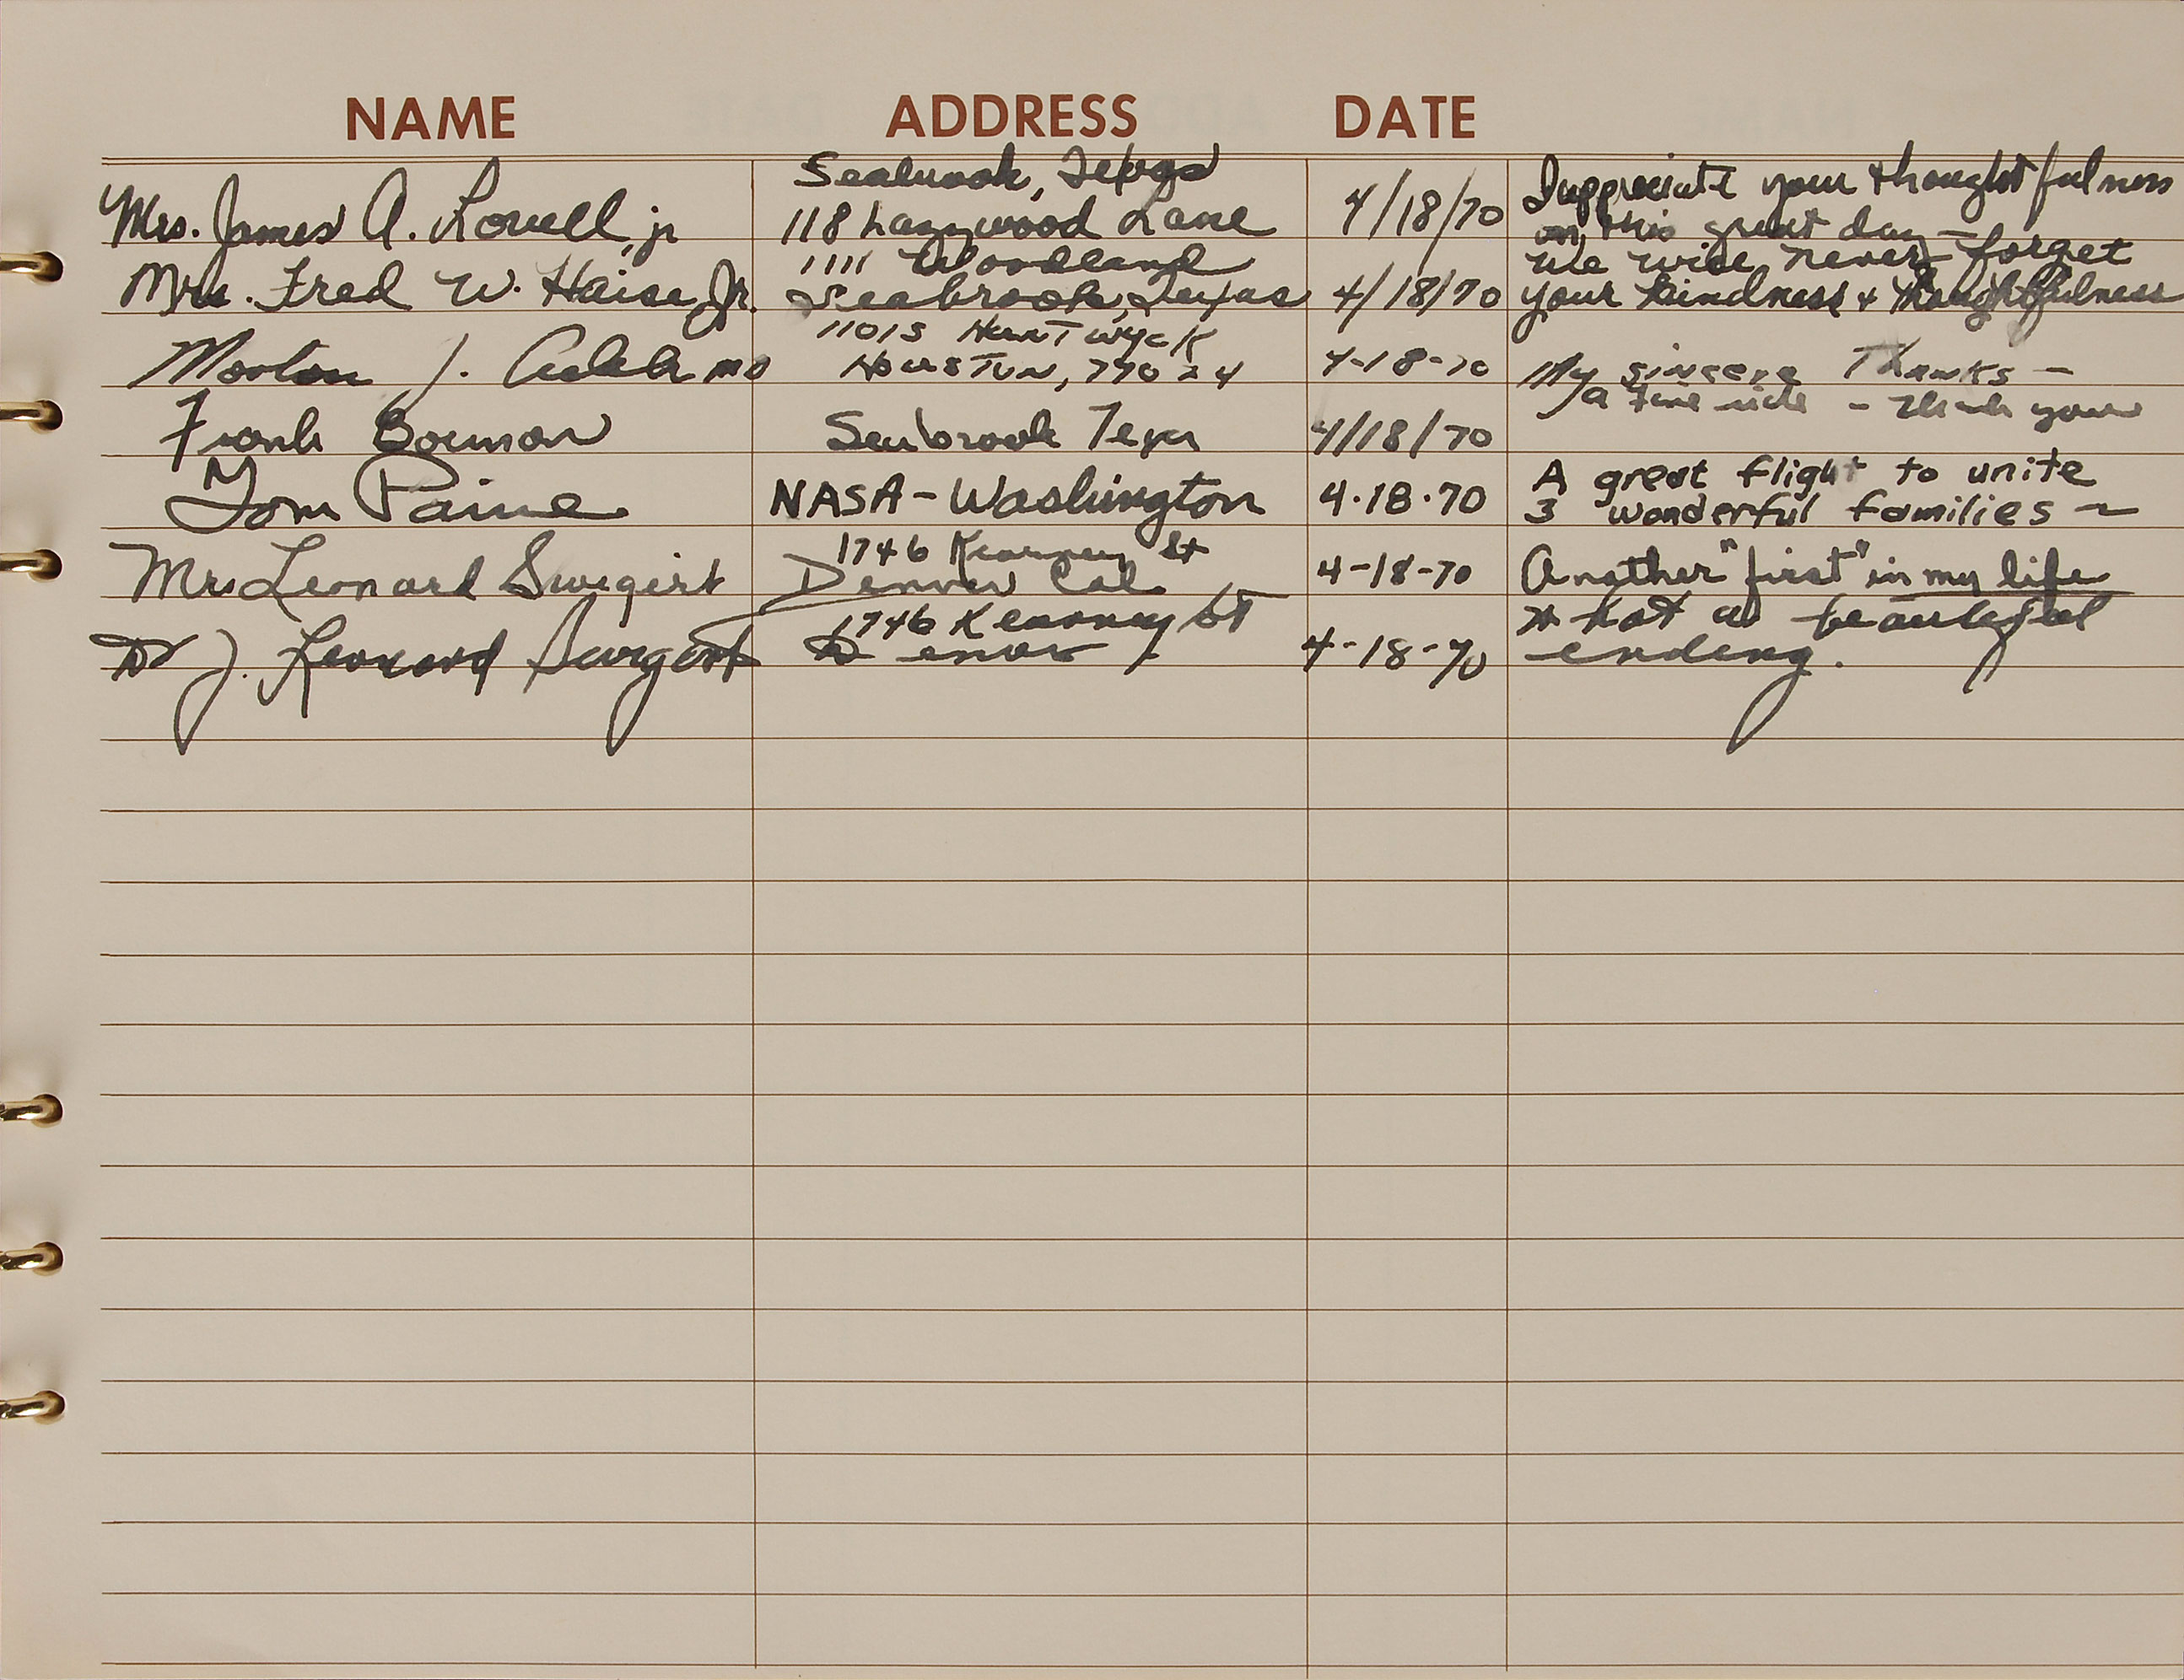 NAME ADDRESS DATE
Mrs. James A. Lovell, jr
Seabrook, Texas
118 Lazywood Lane
4/18/70
I appreciate your thoughtfulness
on this great day –
Mrs. Fred W. Haise, Jr.
1111 Woodland
Seabrook, Texas
4/18/70
We will never forget
your kindness & thoughtfulness
Morton J. MD
11015 Hartwyck
Houston, 77024
4-18-70
My sincere Thanks –
Frank Borman
Seabrook Texas
4/18/70
a fine ride – Thank you
Tom Paine
NASA – Washington
4.18.70
A great flight to unite
3 wonderful families ~
Mrs Leonard Swigert
1746 Kearney St
Denver Col.
4-18-70
Another "first" in my life
Dr J. Leonard Swigert
1746 Kearney St
Denver
4-18-70
What a beautiful
ending.